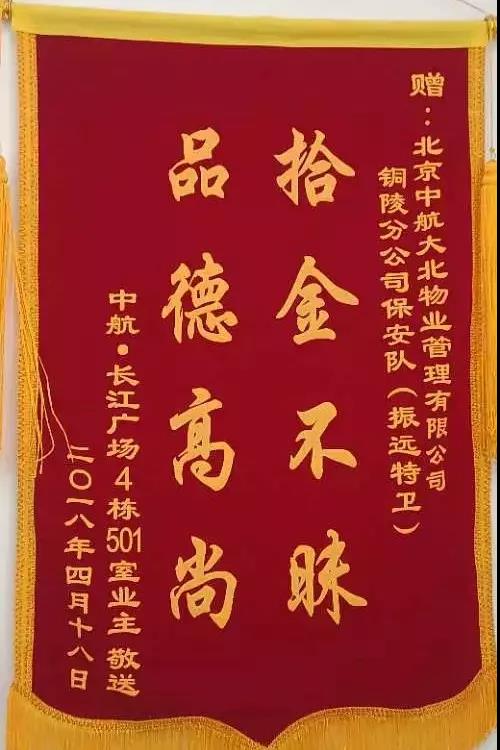 赠：北京中航大北物业管理有限公司
铜陵分公司保安队（振远特卫）
拾金不昧
品德高尚
中航·长江广场4栋501室业主 敬送
二〇一八年四月十八日